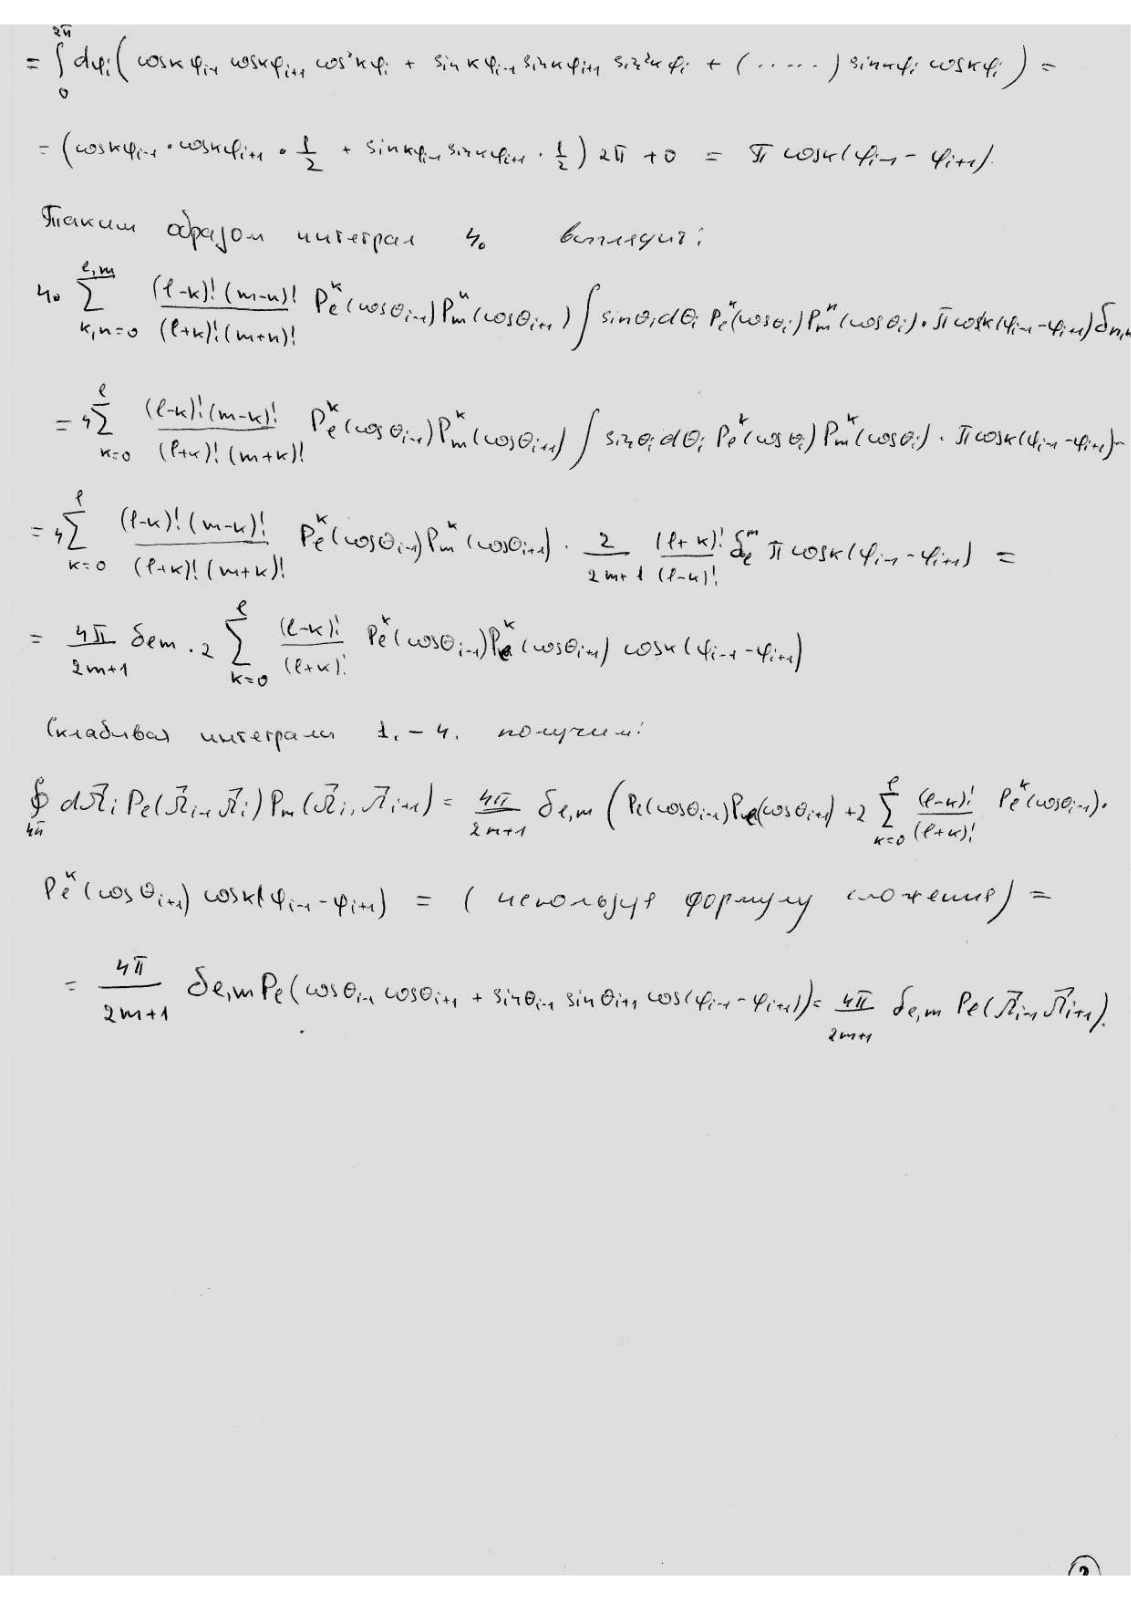 = ∫₀^{2π} dφ_i ( cos kφ_{i-1} cos kφ_{i+1} cos² kφ_i + sin kφ_{i-1} sin kφ_{i+1} sin² kφ_i + (.....) sin kφ_i cos kφ_i ) =
= ( cos kφ_{i-1} · cos kφ_{i+1} · 1/2 + sin kφ_{i-1} sin kφ_{i+1} · 1/2 ) 2π + 0 = π cos k(φ_{i-1} - φ_{i+1}).
Таким образом интеграл 4. выглядит:
4. Σ_{k,n=0}^{l,m} (l-k)!(m-n)! / (l+k)!(m+n)! P_l^k(cosθ_{i-1}) P_m^n(cosθ_{i+1}) ∫ sinθ_i dθ_i P_l^k(cosθ_i) P_m^n(cosθ_i) · π cos k(φ_{i-1} - φ_{i+1}) δ_{n,k}
= 4 Σ_{k=0}^{l} (l-k)!(m-k)! / (l+k)!(m+k)! P_l^k(cosθ_{i-1}) P_m^k(cosθ_{i+1}) ∫ sinθ_i dθ_i P_l^k(cosθ_i) P_m^k(cosθ_i) · π cos k(φ_{i-1} - φ_{i+1}) =
= 4 Σ_{k=0}^{l} (l-k)!(m-k)! / (l+k)!(m+k)! P_l^k(cosθ_{i-1}) P_m^k(cosθ_{i+1}) · 2/(2m+1) (l+k)!/(l-k)! δ_l^m π cos k(φ_{i-1} - φ_{i+1}) =
= 4π/(2m+1) δ_{lm} · 2 Σ_{k=0}^{l} (l-k)!/(l+k)! P_l^k(cosθ_{i-1}) P_l^k(cosθ_{i+1}) cos k(φ_{i-1} - φ_{i+1})
Складывая интегралы 1. - 4. получим:
∮_{4π} dΩ⃗_i P_l(Ω⃗_{i-1} Ω⃗_i) P_m(Ω⃗_i, Ω⃗_{i+1}) = 4π/(2m+1) δ_{l,m} ( P_l(cosθ_{i-1}) P_l(cosθ_{i+1}) + 2 Σ_{k=0}^{l} (l-k)!/(l+k)! P_l^k(cosθ_{i-1}) ·
P_l^k(cosθ_{i+1}) cos k(φ_{i-1} - φ_{i+1}) = ( используя формулу сложения ) =
= 4π/(2m+1) δ_{l,m} P_l( cosθ_{i-1} cosθ_{i+1} + sinθ_{i-1} sinθ_{i+1} cos(φ_{i-1} - φ_{i+1}) ) = 4π/(2m+1) δ_{l,m} P_l(Ω⃗_{i-1} Ω⃗_{i+1}).